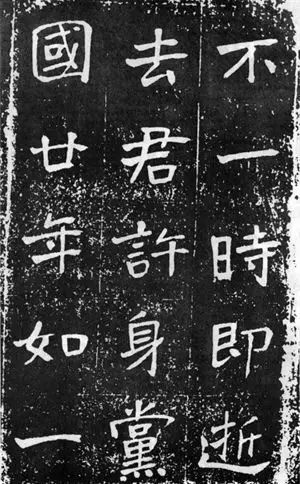 不一時即逝
去君許身黨
國廿年如一